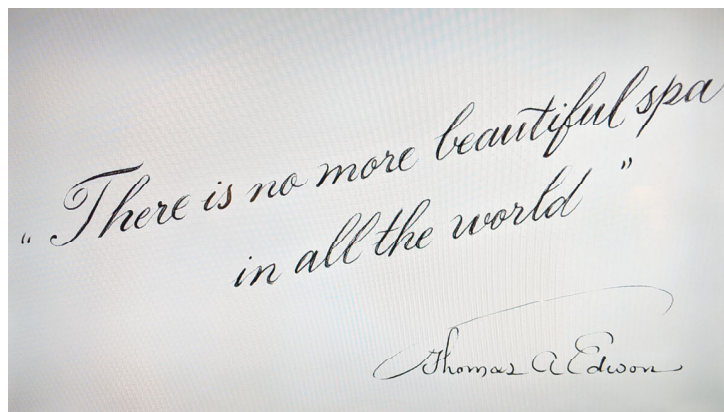 “ There is no more beautiful spa
in all the world ”
Thomas A Edison